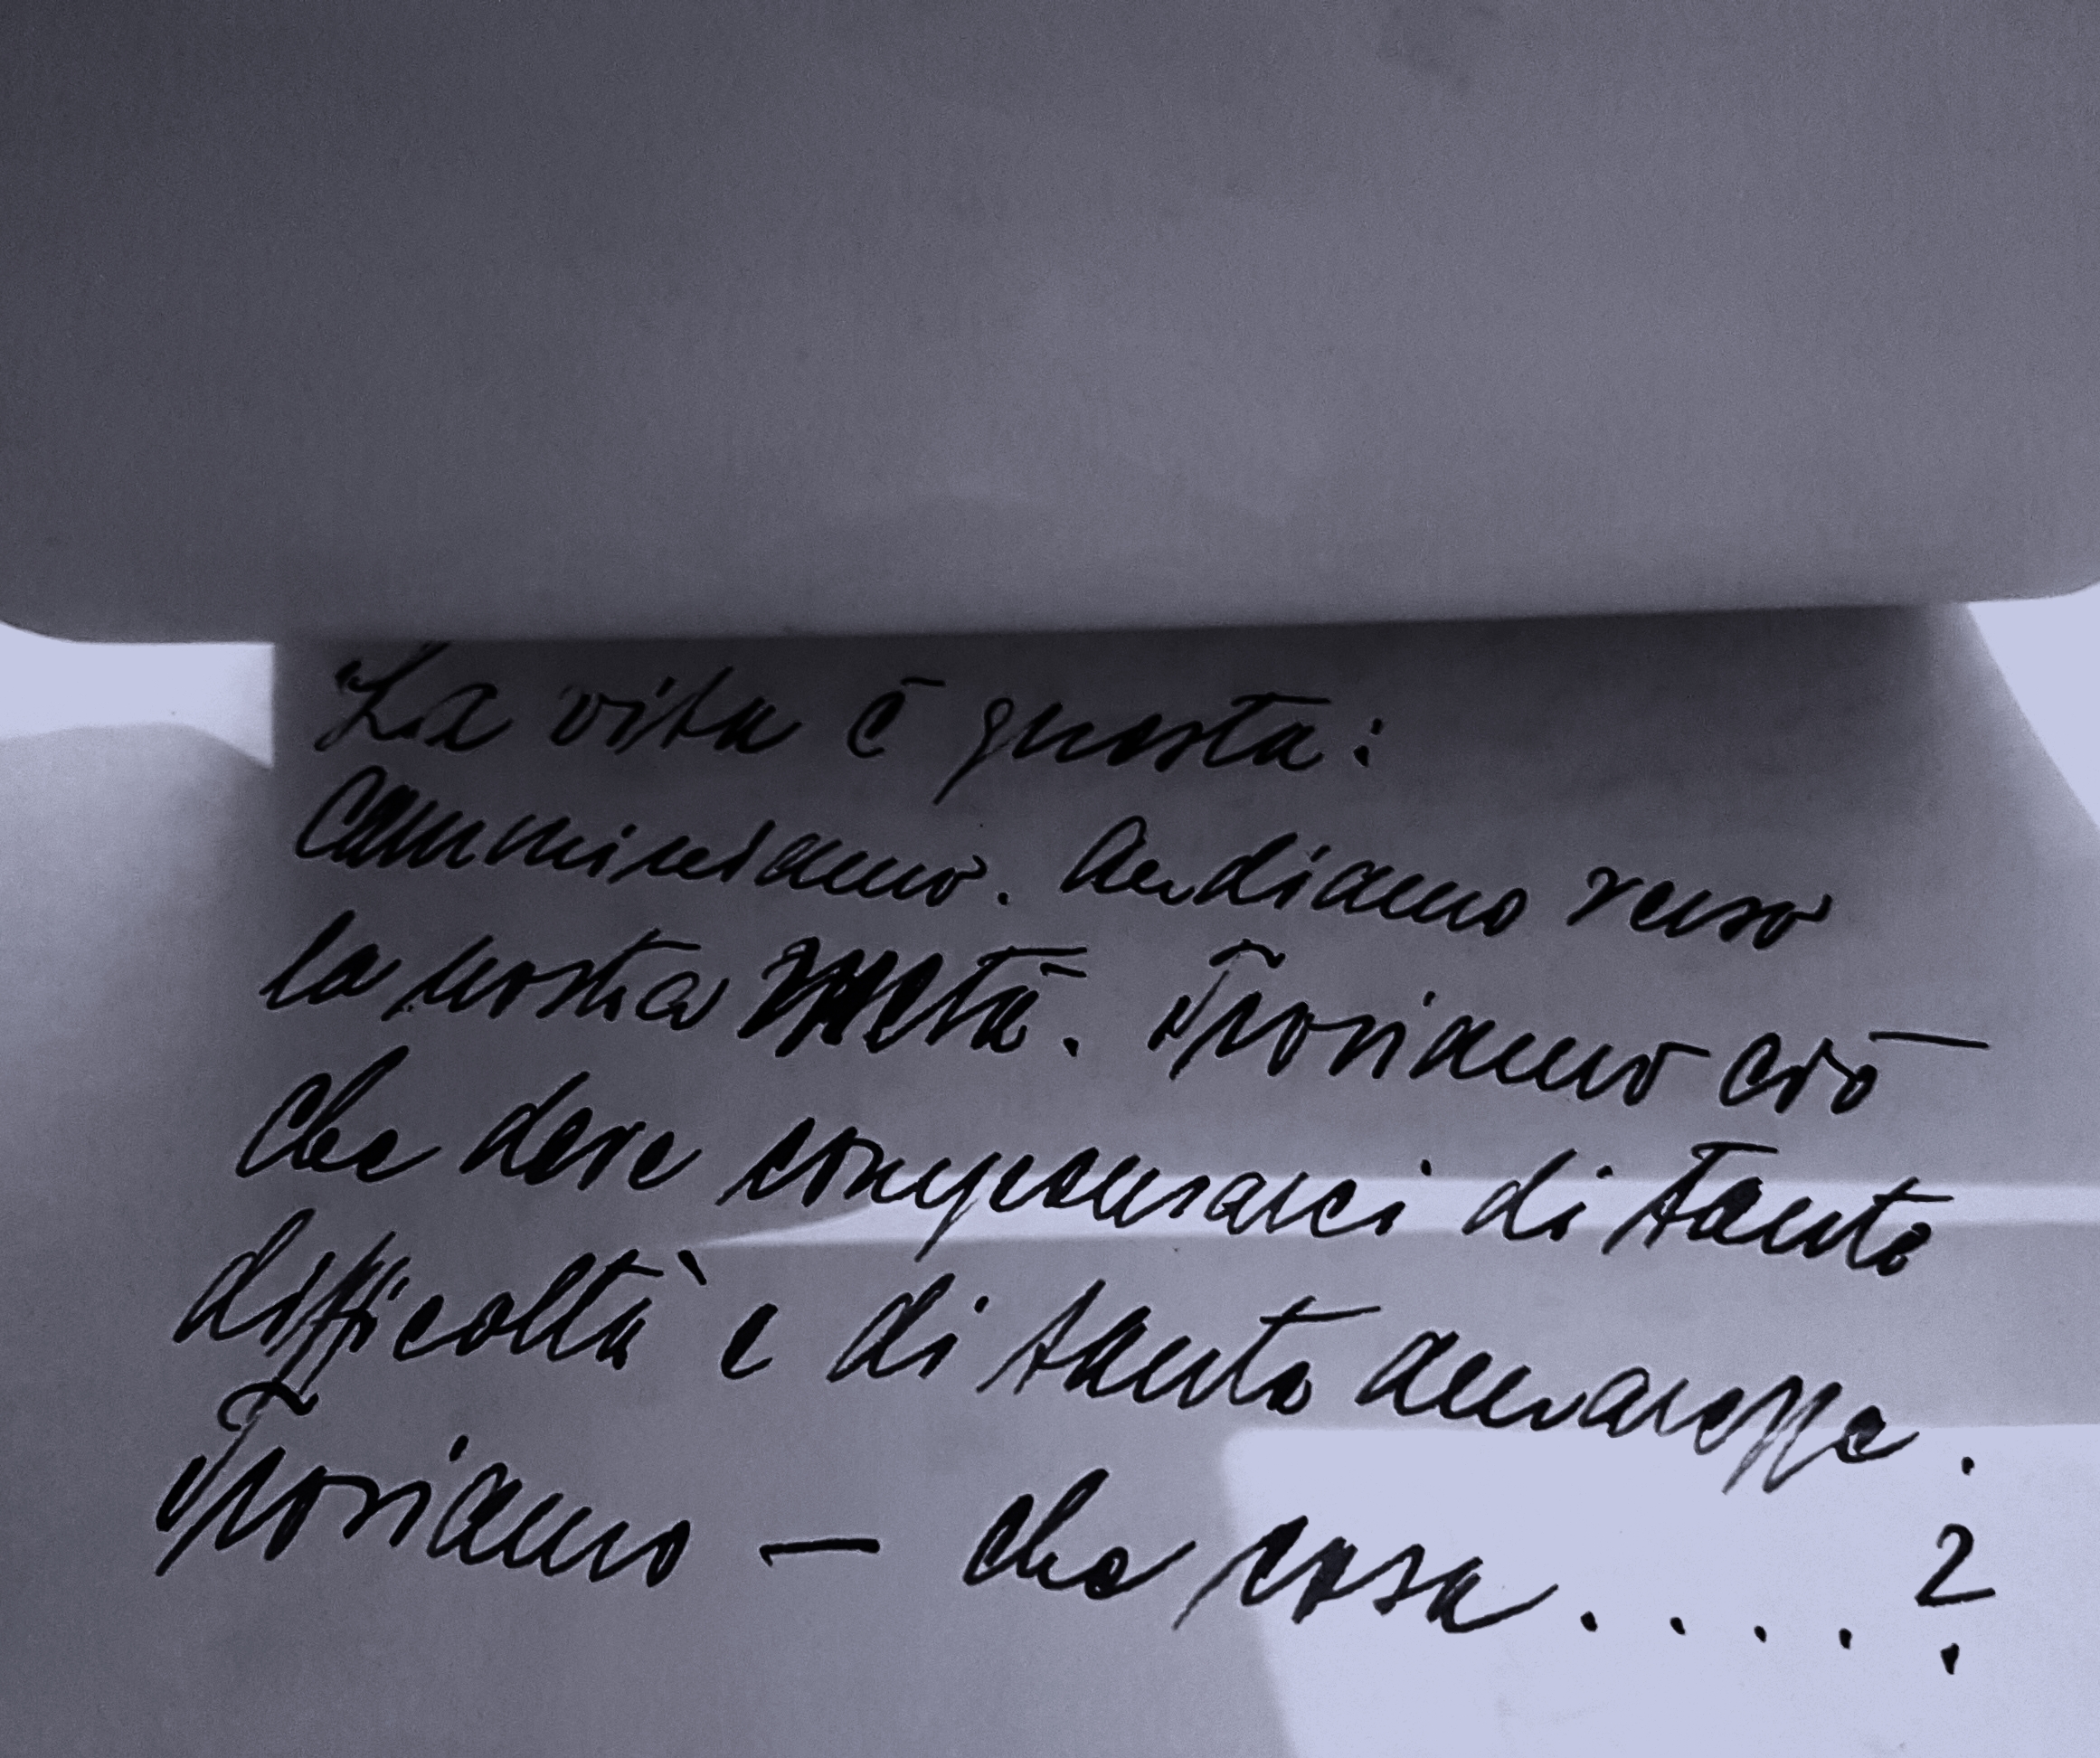 La vita è questa:
Camminiamo. Andiamo verso
la nostra metà. Troviamo ciò
che deve compensarci di tante
difficoltà e di tante amarezze.
Troviamo — che cosa....?